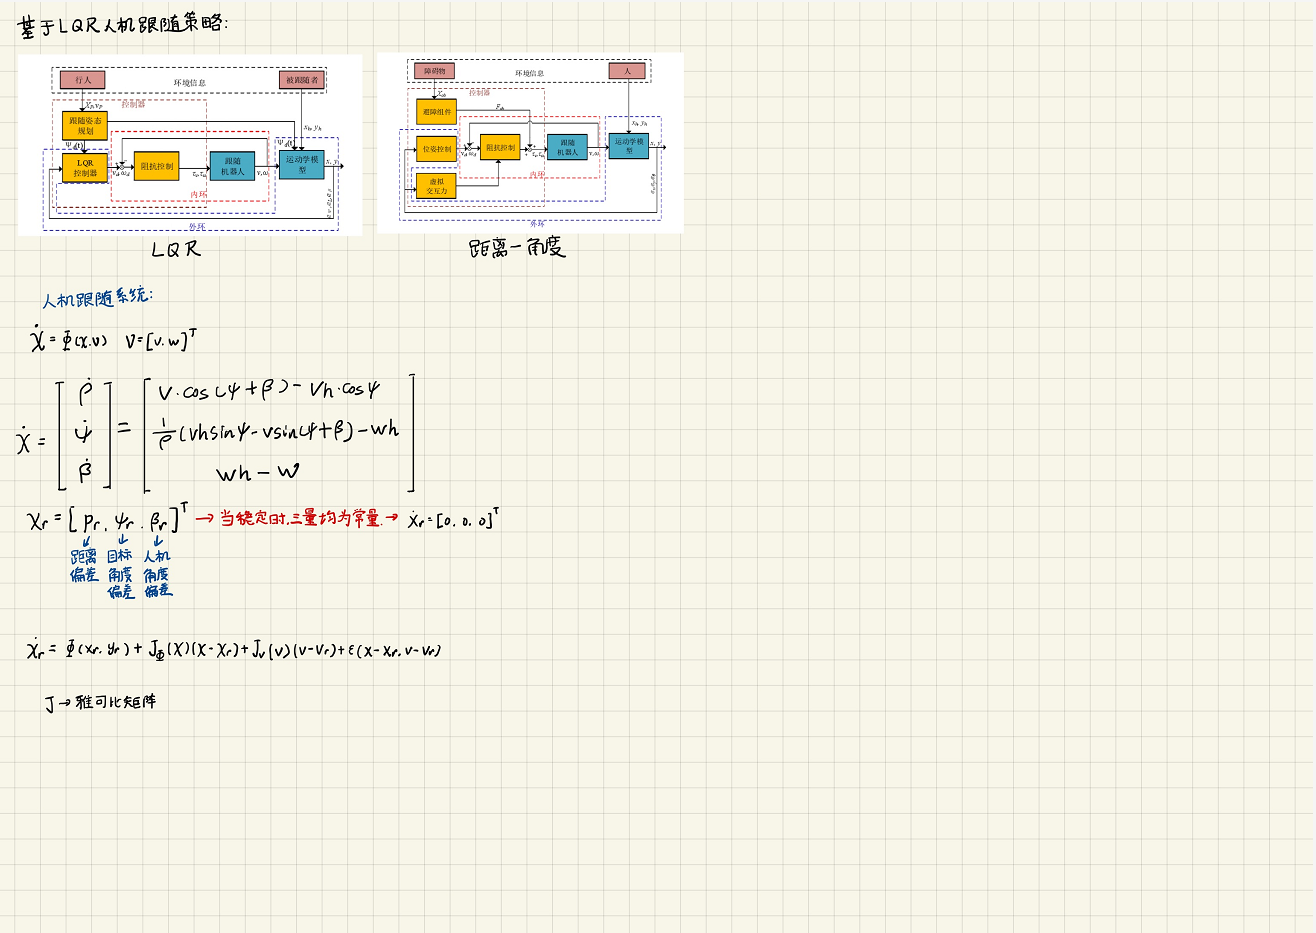 基于LQR人机跟随策略:
行人
环境信息
被跟随者
控制器
跟随姿态
规划
xₕ, yₕ
Ψd(t)
Ψd(t)
LQR
控制器
阻抗控制
跟随
机器人
运动学模
型
x, y
内环
外环
LQR
障碍物
环境信息
人
控制器
避障组件
xₕ, yₕ
位姿控制
阻抗控制
跟随
机器人
运动学模
型
虚拟
交互力
内环
外环
距离-角度
人机跟随系统:
ẋ = Φ(x.v) V=[v.w]ᵀ
ẋ = [ρ̇ ψ̇ β̇] =
v·cos(ψ+β) - vh·cosψ
1/ρ(vhsinψ - vsin(ψ+β)) - wh
wh - w
xr = [ρr, ψr. βr]ᵀ → 当稳定时,三量均为常量. → ẋr=[0. 0. 0]ᵀ
距离偏差
目标角度偏差
人机角度偏差
ẋr = Φ(xr. yr) + JΦ(x)(x-xr) + Jv(v)(v-vr) + ε(x-xr. v-vr)
J → 雅可比矩阵